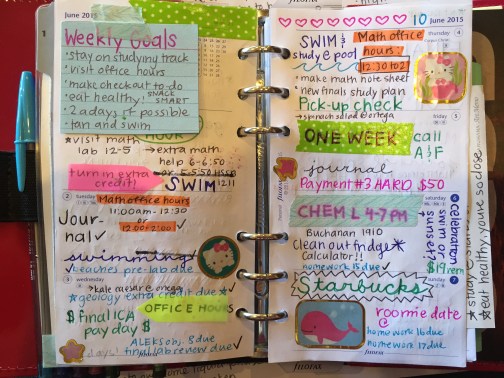 June 2015
Weekly Goals
• stay on studying track
• visit office hours
• make checkout to do
• eat healthy! SNACK SMART
• 2 a days if possible
• tan and swim
* visit math
lab 12-5 → extra math
help 6-6:50
or 5-5:50 HSSB
1211
turn in extra
credit!
SWIM
tuesday
2
Math office hours
11:00am-12:30
12:00-2:00
Journal ✓
swimming!
✓ beaches pre-lab due
wednesday
3
* kale caesar @ ortega
* geology extra credit due *
$ final ICA
pay day $
OFFICE HOURS
ALEKS obj. 8 due
final lab review due ✓
filofax
10 June 2015
SWIM &
study @ pool
Math office
hours!
12:30 to 2
thursday 4
• make math note sheet
• new finals study plan
Pick-up check
* spinach salad @ ortega
friday 5
ONE WEEK
call
A & F
journal
Payment #3 HARD $50
saturday 6
CHEM L 4-7 PM
Buchanan 1910
Clean out fridge
Calculator!!
homework 15 due ✓
celebration
swim or
sunset??
$19 rem
sunday 7
Starbucks
roomie date
@
homework 16 due
homework 17 due
filofax
* eat healthy, you're so close